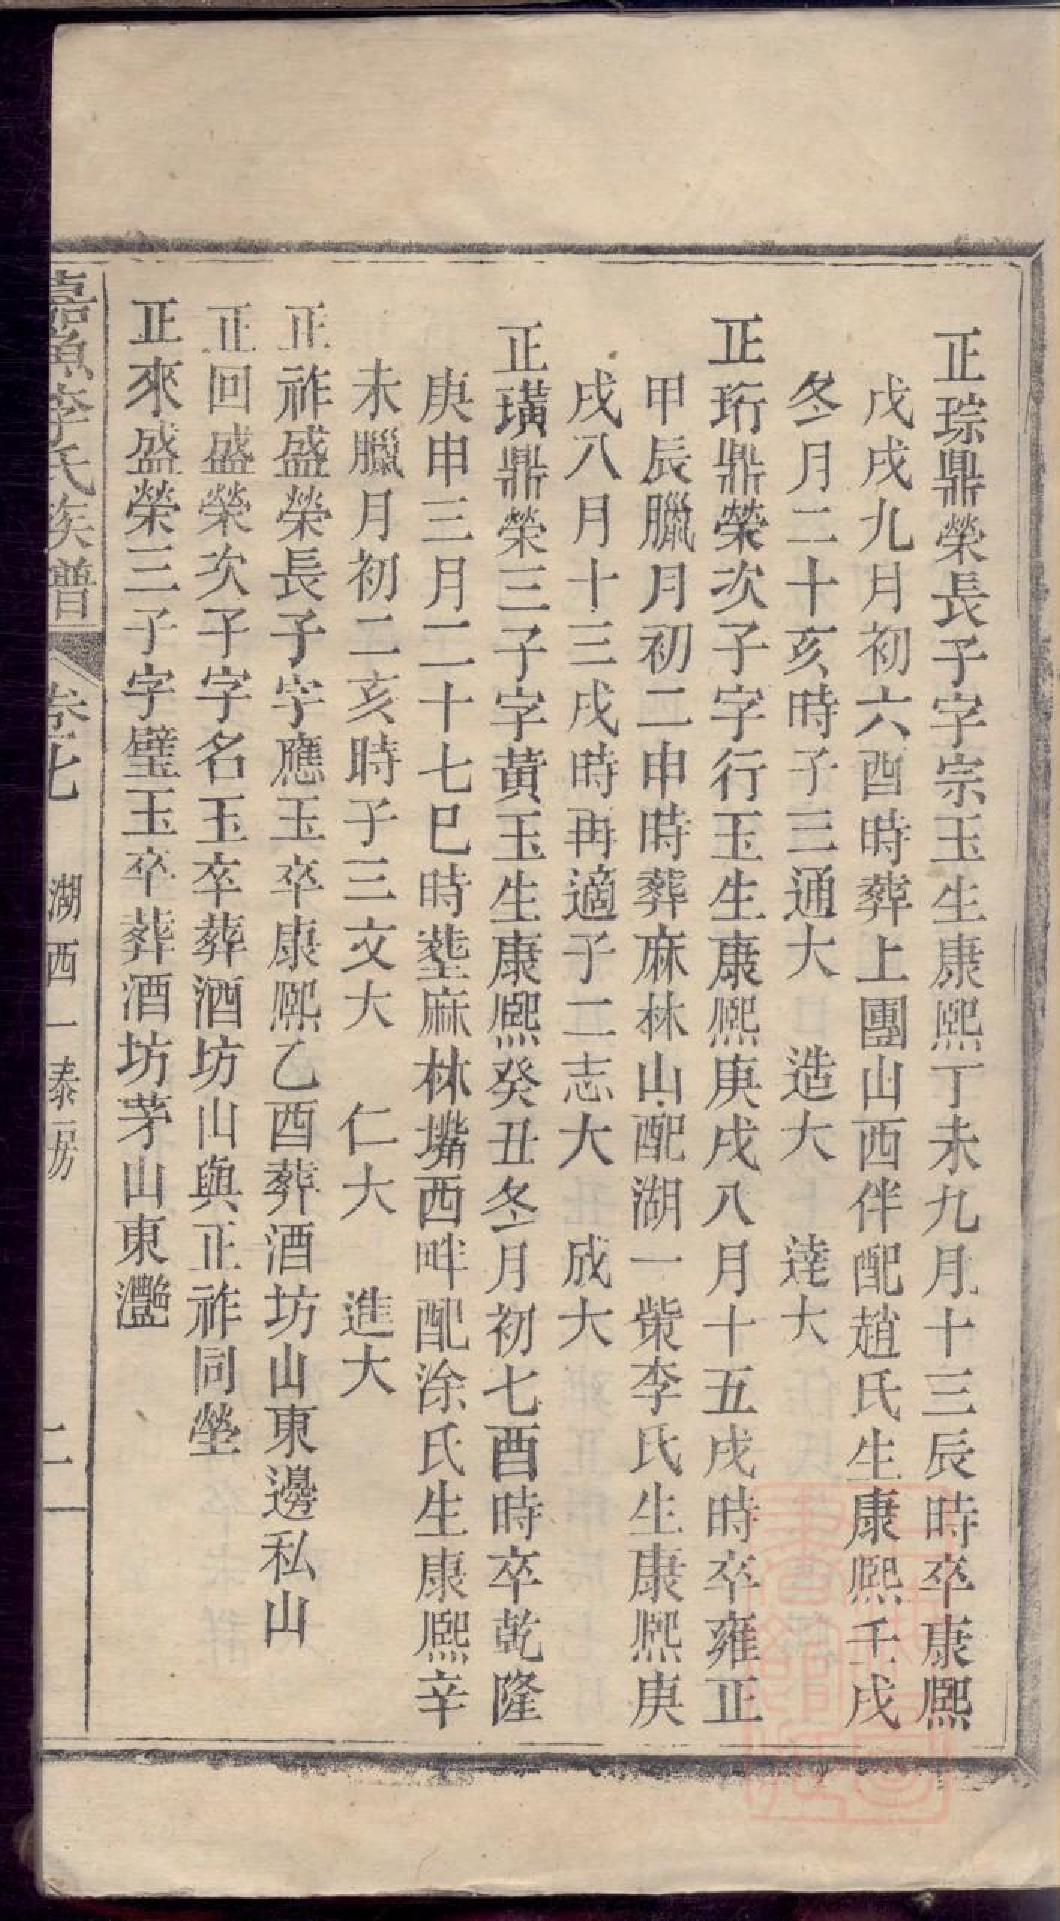 正琮鼎榮長子字宗玉生康熙丁未九月十三辰時卒康熙
戊戌九月初六酉時葬上團山西伴配趙氏生康熙壬戌
冬月二十亥時子三通大　造大　逹大
正珩鼎榮次子字行玉生康熙庚戌八月十五戌時卒雍正
甲辰臘月初二申時葬麻林山配湖一柴李氏生康熙庚
戌八月十三戌時再適子二志大　成大
正璜鼎榮三子字黃玉生康熙癸丑冬月初七酉時卒乾隆
庚申三月二十七巳時塟麻林嘴西畔配涂氏生康熙辛
未臘月初二亥時子三文大　仁大　進大
正祚盛榮長子字應玉卒康熙乙酉葬酒坊山東邊私山
正回盛榮次子字名玉卒葬酒坊山與正祚同塋
正來盛榮三子字璧玉卒葬酒坊茅山東灧
嘉魚李氏族譜　卷七　湖西一泰房　二一